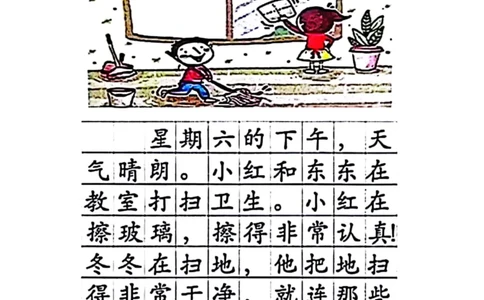 星期六的下午，天
气晴朗。小红和东东在
教室打扫卫生。小红在
擦玻璃，擦得非常认真!
冬冬在扫地，他把地扫
得非常干净，就连那些